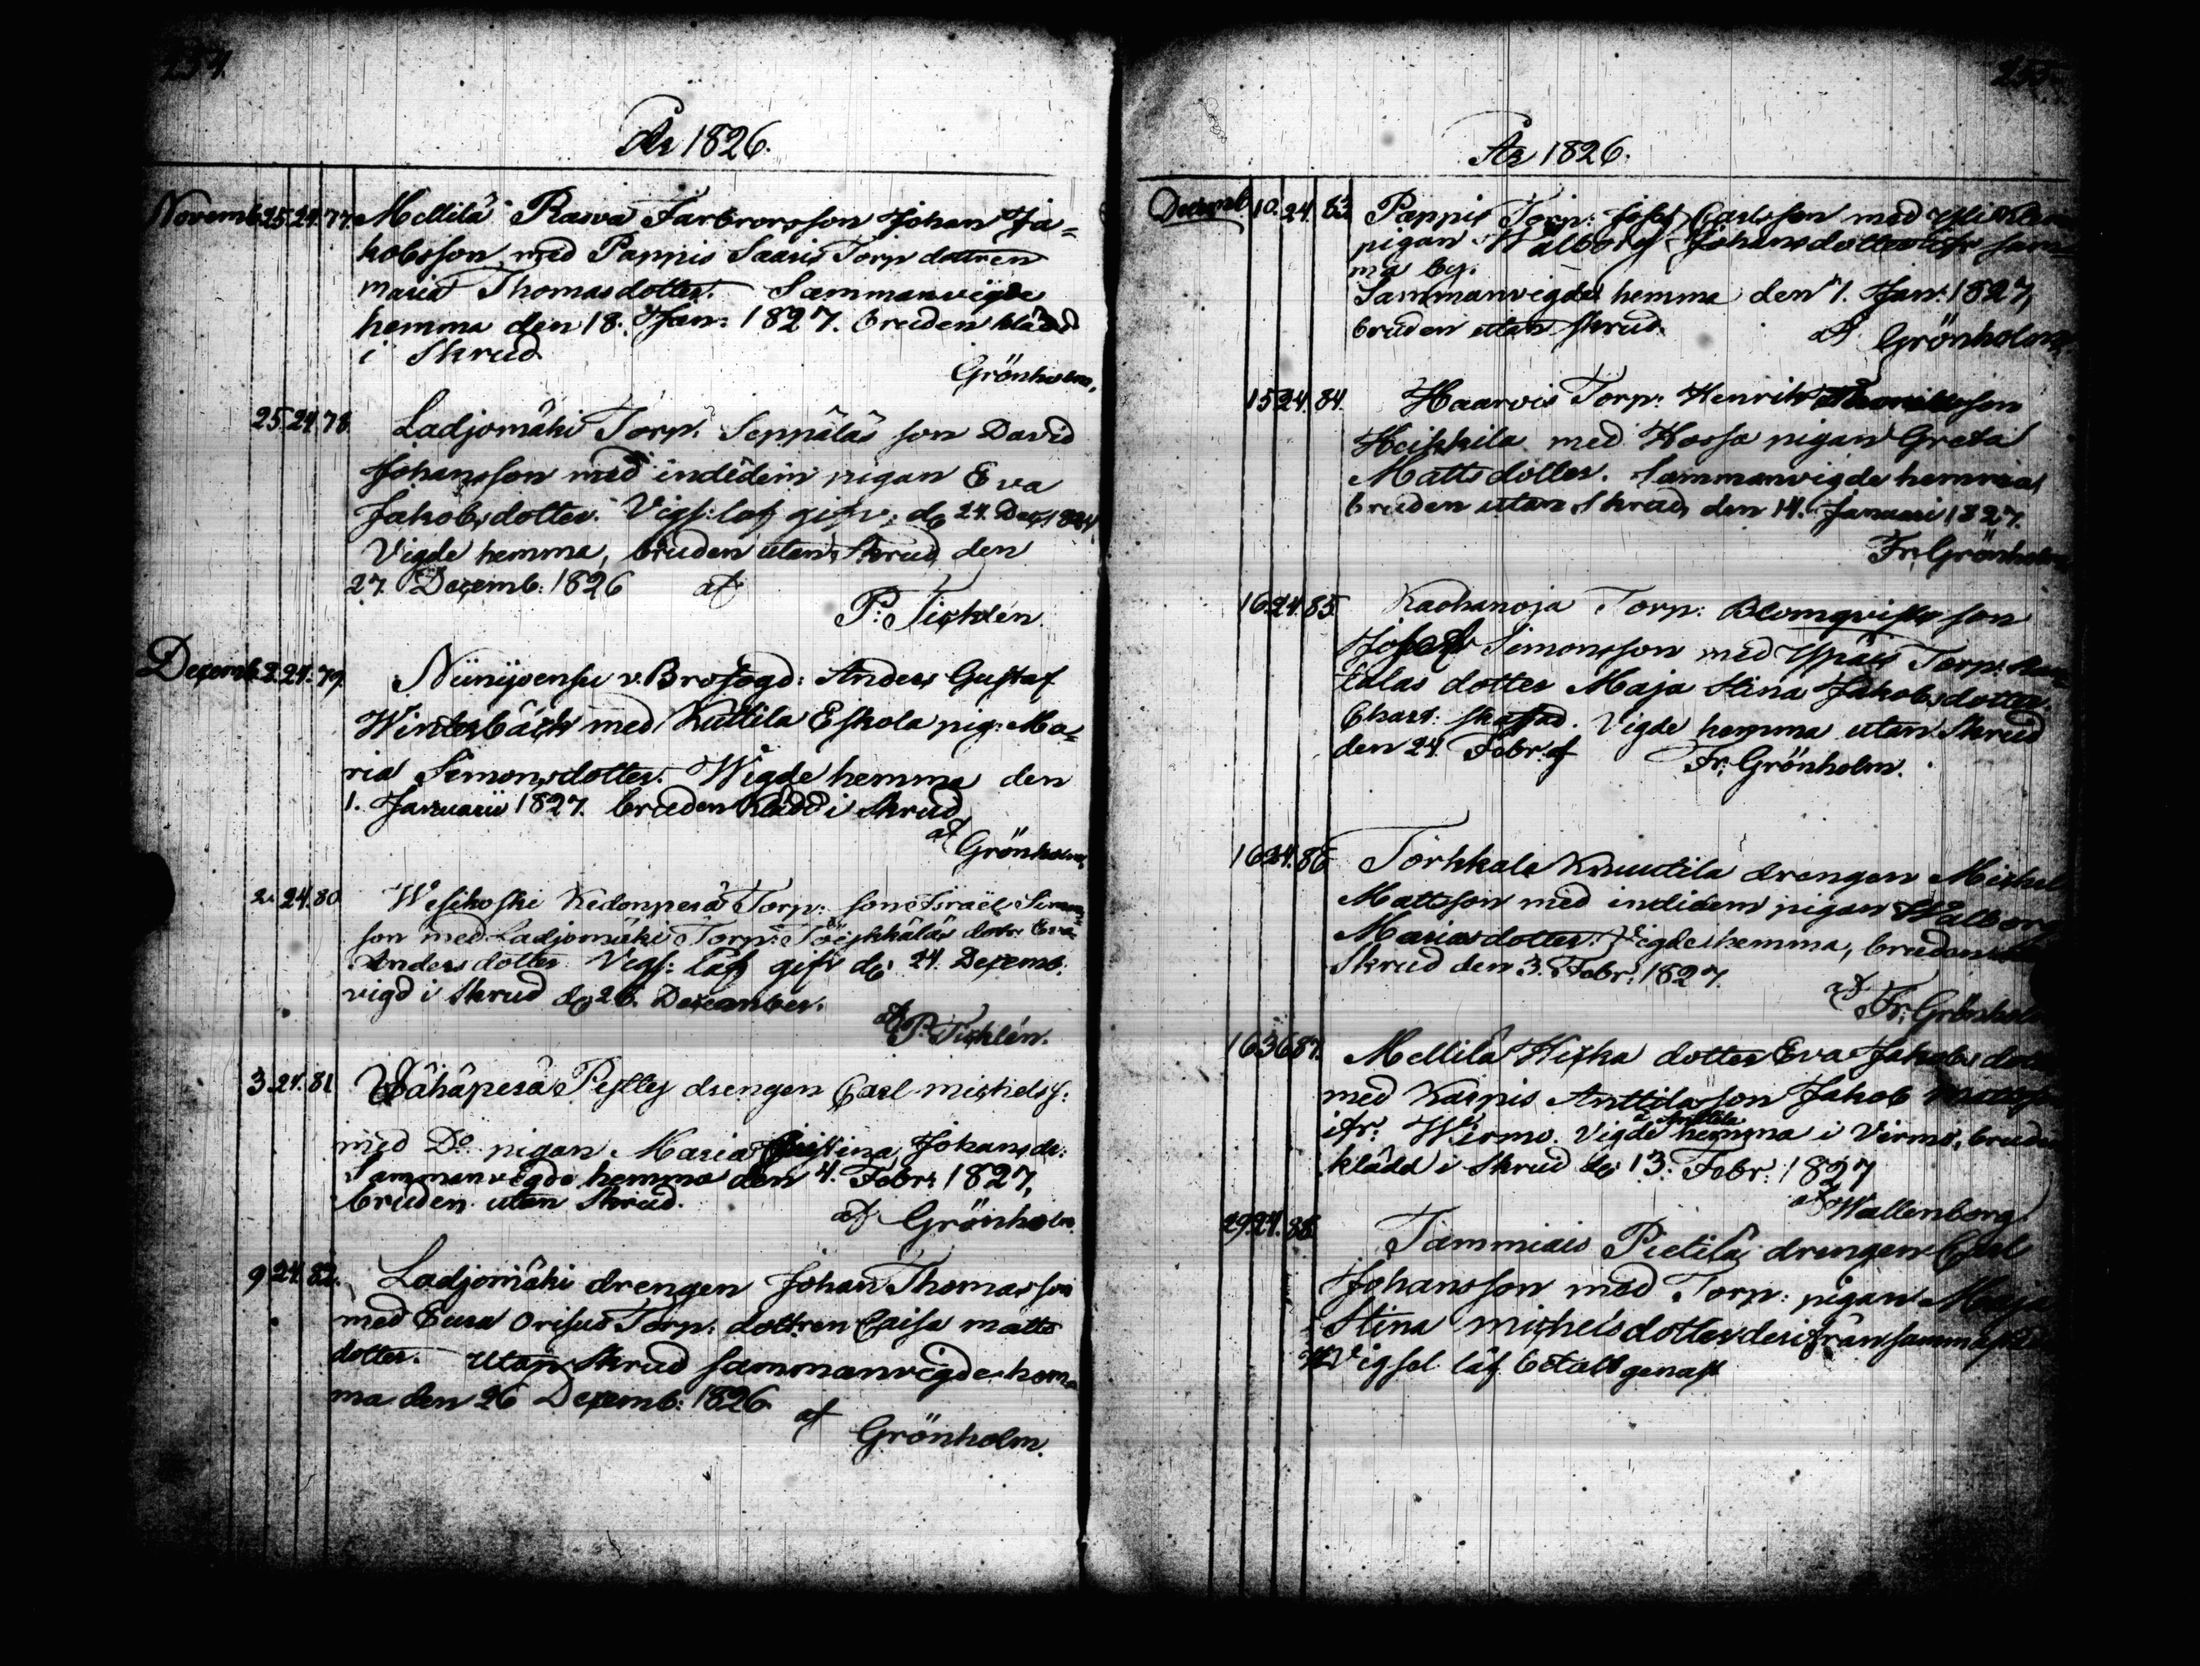 År 1826.
Novemb. 25. 24. 77. Mellilä Rawa Farbrorsson Johan Ja=
kobsson med Pappis Saaris Torp dottren
Maria Thomasdotter. Sammanvigde
hemma den 18. Jan: 1827. bruden klädd
i Skrud
Grönholm.
25. 24. 78. Ladjomäki Torp: Seppäläs son David
Johansson med indidem pigan Eva
Jakobsdotter. Vigs: laf gifv. d 24. Dec.
Vigde hemma, bruden utan Skrud den
27. Decemb. 1826 af
P: Ticklén.
Decemb. 2. 24. 79. Niinijoensu v. Brofogd: Anders Gustaf
Winterbäck med Kuttila Eskola pig: Ma=
ria Simonsdotter. Wigde hemma den
1. Januarii 1827. bruden klädd i Skrud
af
Grönholm.
2. 24. 80. Wesikoski Kedonperä Torp: son Israël Simons=
son med Ladjomäki Torp: dotr Eva
Andersdotter. Vigs: läf gifv d 24. Decemb.
vigd i Skrud d 26. December.
af P. Ticklén.
3. 24. 81. Wähäperä Peslley drengen Carl Michels s:
med Do pigan Maria Christina Johansdr:
Sammanvigde hemma den 4. Febr: 1827,
bruden utan Skrud.
af Grönholm
9. 24. 82. Ladjomäki drengen Johan Thomasson
med Eura Orisuo Torp: dottren Caisa Matts
dotter. utan Skrud sammanvigde hem=
ma den 26 Decemb: 1826.
af
Grönholm.
År 1826.
Decemb. 10. 24. 83. Pappis Torp: Josef Carlsson med
pigan Walborg Johansdotter ifr sam=
ma by.
Sammanvigde hemma den 1. Jan: 1827,
bruden utan skrud.
af Grönholm.
15 24. 84. Haarvis Torp: Henrik
Heikkila med Hossa pigan Greta
Mattsdotter. Sammanvigde hemma
bruden utan Skrud, den 14. Januari 1827.
Fr. Grönholm
16. 24. 85. Kaohanoja Torp: Blomqvists son
Josef Simonsson med Torp:
dotter Maja Stina Jakobsdotter.
Vigde hemma utan Skrud
den 24. Febr. af Fr. Grönholm.
16 24. 86. Torkkala Knuutila drengen Michel
Mattsson med indidem pigan Walborg
Mariasdotter. Vigde hemma, bruden
Skrud den 3. Febr: 1827.
af Fr. Grönholm
16 36 87. Mellilä Heska dotter Eva Jakobs
med Karpis Anttila son Jakob Mattsson
ifr: Wirmo. Vigde hemma i Virmo, bruden
å Anttila
klädd i Skrud d 13. Febr: 1827
af Wallenborg.
29. 24. 88. Tammiais Pietilä drengen Carl
Johansson med Torp: pigan Maja
Stina Michelsdotter derifrån samma
Vigsel läf. betalt genast